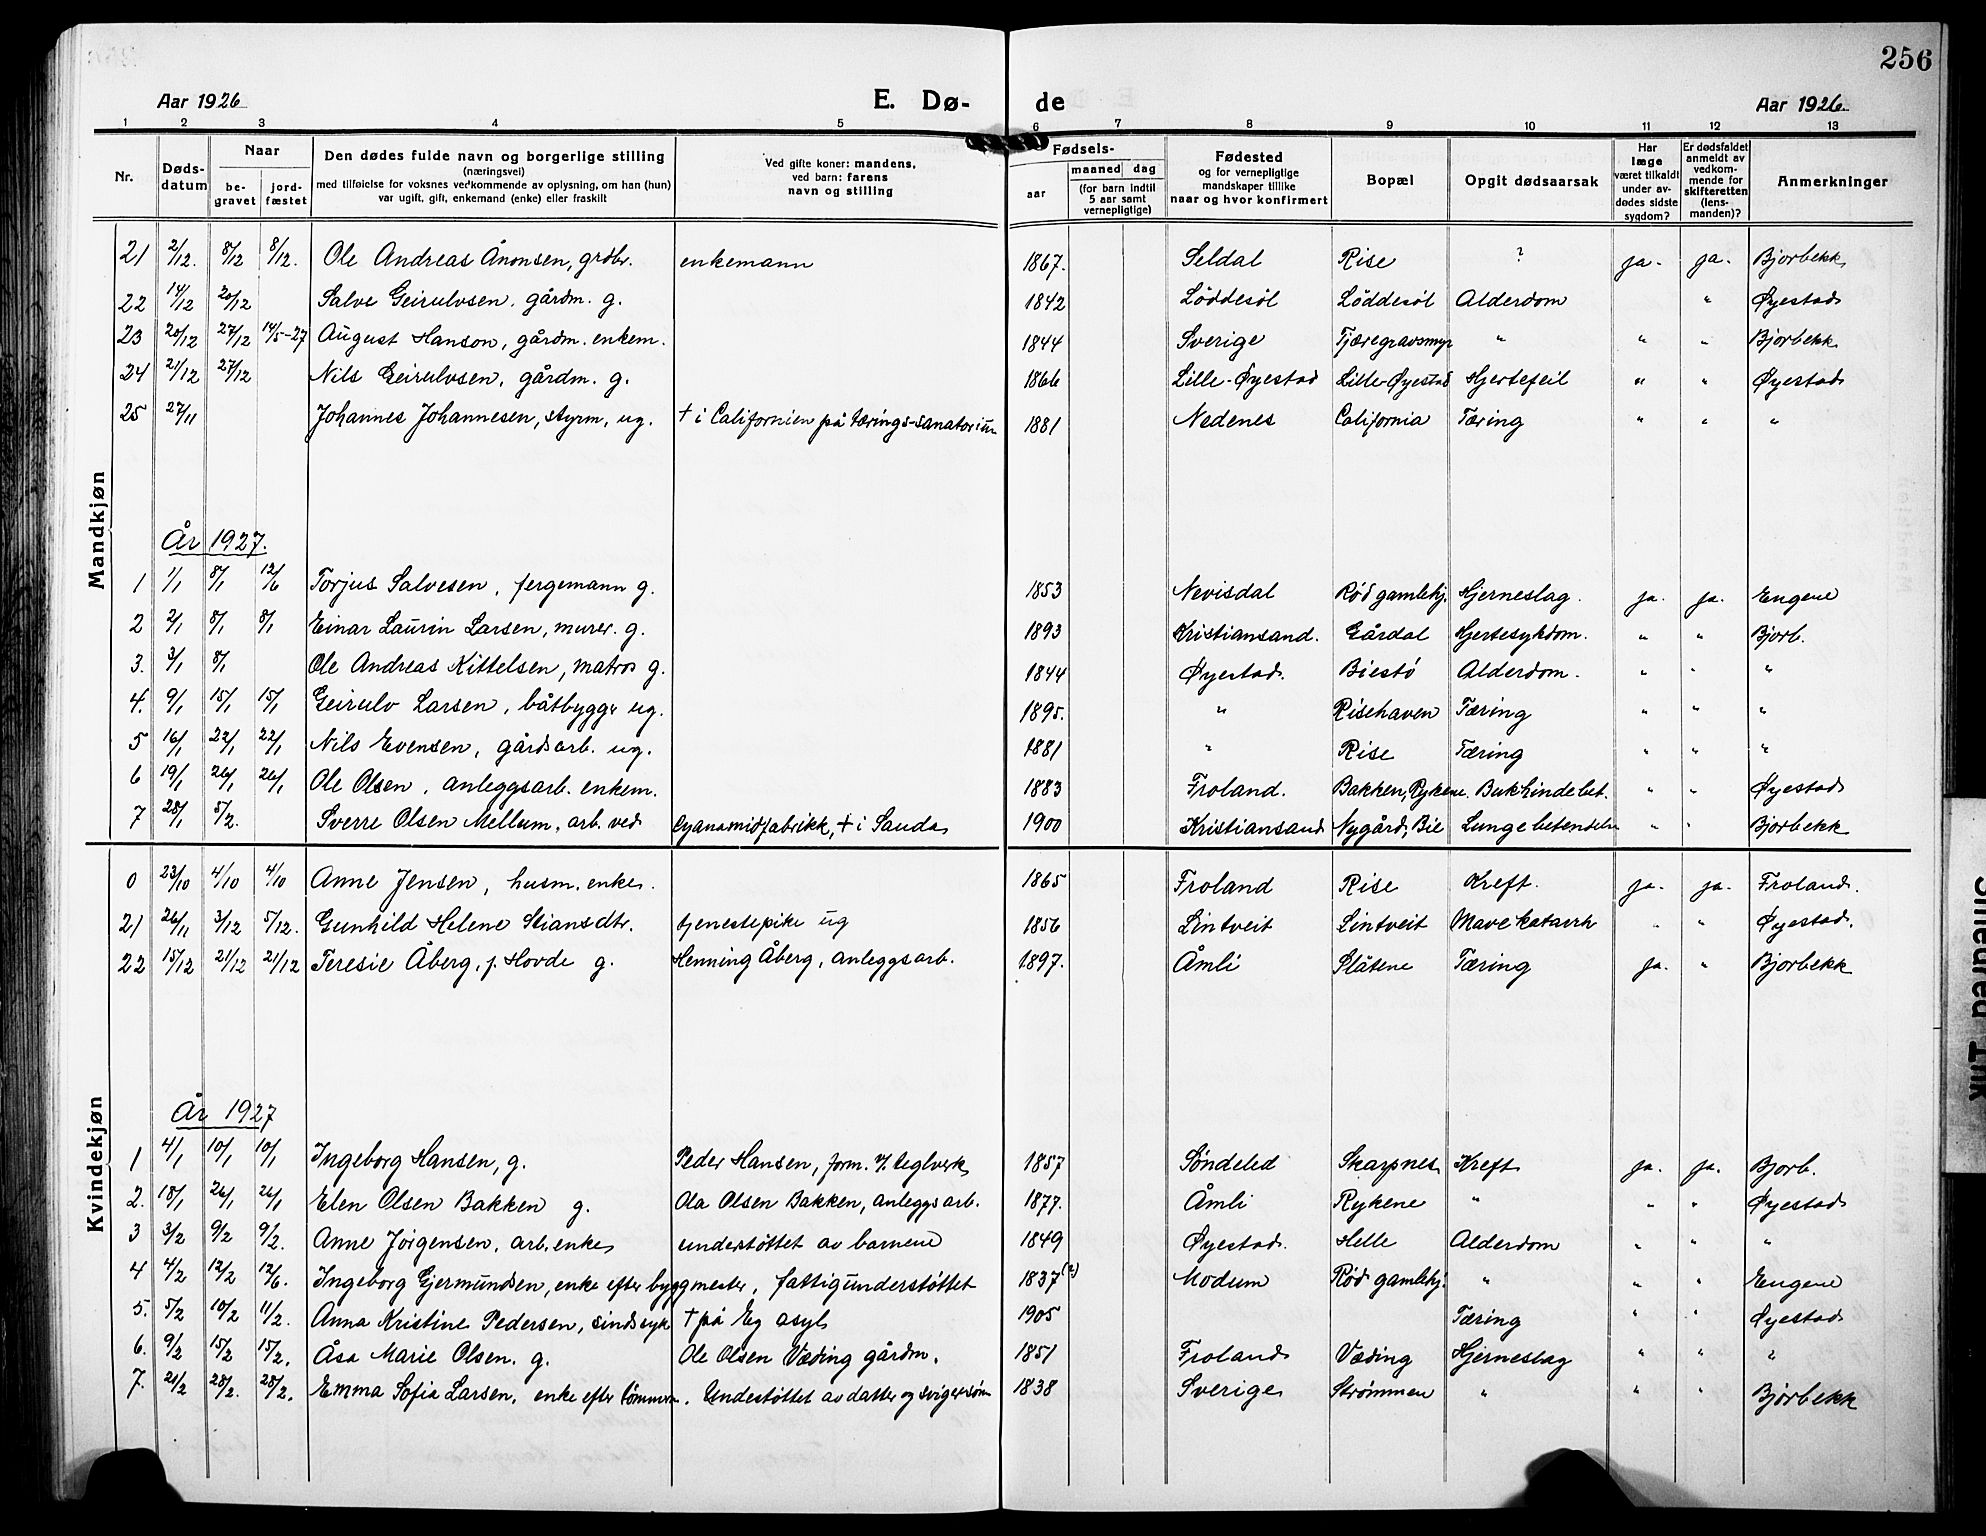 256
Aar 1926 E. Dø- de Aar 1926.
1 2 3 4 5 6 7 8 9 10 11 12 13
Nr. Dødsdatum Naar begravet jordfæstet Den dødes fulde navn og borgerlige stilling (næringsvei) med tilføielse for voksnes vedkommende av oplysning, om han (hun) var ugift, gift, enkemand (enke) eller fraskilt Ved gifte koner: mandens, ved barn: farens navn og stilling Fødsels- aar maaned dag (for barn indtil 5 aar samt vernepligtige) Fødested og for vernepligtige mandskaper tillike naar og hvor konfirmert Bopæl Opgit dødsaarsak Har læge været tilkaldt under avdødes sidste sygdom? Er dødsfaldet anmeldt av vedkommende for skifteretten (lensmanden)? Anmerkninger
Mandkjøn
21 2/12. 8/12 8/12. Ole Andreas Ånonsen, grdbr. enkemann 1867. Seldal Rise ? ja. ja. Bjorbekk
22 14/12 20/12 Salve Geirulvsen. gårdm. g. 1842 Løddesøl Løddesøl Alderdom " Øyestad
23 20/12 27/12 14/5-27 August Hanson, gårdm. enkem. 1844 Sverige Tjæregravsmyr " " " Bjorbekk
24 21/12 27/12 Nils Geirulvsen, gårdm. g. 1866 Lille-Øyestad Lille-Øyestad Hjertefeil " " Øyestad
25 27/11 Johannes Johannesen, styrm, ug. † i Californien på tærings-sanatorium 1881 Nedenes California Tæring " " "
År 1927.
1 1/1 8/1 12/6 Torjus Salvesen, fergemann g. 1853 Nevisdal Rød gamlehj. Hjerneslag. ja. ja. Engene
2 2/1 8/1 8/1 Einar Laurin Larsen, murer. g. 1893 Kristiansand. Gårdal Hjertesykdom. " " Bjorb.
3. 3/1 8/1 Ole Andreas Kittelsen, matros g. 1844 Øyestad. Biestø Alderdom. " " "
4. 9/1 15/1 15/1 Geirulv Larsen, båtbygger ug. 1895. " Risehaven Tæring " " "
5 16/1 22/1 22/1 Nils Evensen, gårdsarb. ug. 1881 " Rise Tæring " " "
6 19/1 26/1 26/1 Ole Olsen, anleggsarb. enkem. 1883 Froland. Bakken, Rykene. Bukhindebet. " " Øyestad
7 28/1 5/2. Sverre Olsen Mellum, arb. ved Cyanamidfabrikk, † i Sauda 1900 Kristiansand Nygård, Bie Lungebetendelse " " Bjorbekk
Kvindekjøn
0 23/10 4/10 4/10 Anne Jensen, husm. enke. 1865 Froland Rise Kreft. ja. ja. Froland.
21 26/11 3/12 5/12. Gunhild Helene Stiansdtr. tjenestepike ug 1856 Lintveit Lintveit Mavekatarrh " " Øyestad.
22 15/12 21/12 21/12 Teresie Åberg, f. Hovde g. Henning Åberg, anleggsarb. 1897. Åmli Slåtene Tæring ja. " Bjorbekk
År 1927
1 4/1 10/1 10/1 Ingeborg Hansen, g. Peder Hansen, form. v/ teglverk 1857 Søndeled Skarpnes Kreft ja. ja. Bjorb.
2. 18/1 26/1 26/1 Elen Olsen Bakken g. Ola Olsen Bakken, anleggsarb. 1877. Åmli Rykene " " " Øyestad
3 3/2 9/2 9/2. Anne Jørgensen, arb. enke understøttet av barnene 1849 Øyestad. Helle Alderdom " " "
4 4/2 12/2 12/6. Ingeborg Gjermundsen, enke efter byggmester, fattigunderstøttet 1837 (?) Modum Rød gamlehj. " " " Engene
5. 5/2 10/2 11/2. Anna Kristine Pedersen, sindssyk † på Eg asyl 1905 Tæring " " Øyestad
6. 9/2 15/2 15/2. Åsa Marie Olsen. g. Ole Olsen Væding gårdm. 1851 Froland Væding Hjerneslag " " "
7. 21/2 28/2. 28/2. Emma Sofia Larsen, enke efter tømmerm. Undestøttet av datter og svigersøn 1838 Sverige Strømmen " " " Bjorbekk
Smeared Ink